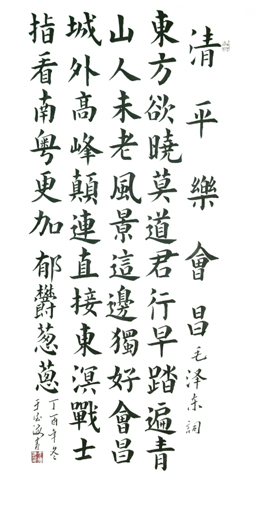 清平樂會昌 毛泽东词
東方欲曉莫道君行早踏遍青
山人未老風景這邊獨好會昌
城外高峰顛連直接東溟戰士
指看南粤更加郁鬱葱葱
丁酉年冬